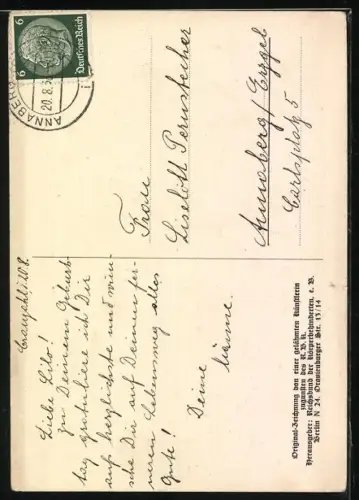 6 Deutsches Reich 6
ANNABERG
20.8.3
Frau
Liselott Pernstecher
Annaberg/Erzgeb
Carlsplatz 5
Liebe Lilo!
Zu Deinem Geburts-
tag gratuliere ich Dir
aufs herzlichste und wün-
sche Dir auf Deinem fer-
neren Lebensweg alles
Gute!
Deine
Original-Zeichnung von einer gelähmten Künstlerin
zugunsten des R.B.K.
Herausgeber: Reichsbund der Körperbehinderten, e. V.
Berlin N 24, Oranienburger Str. 13/14